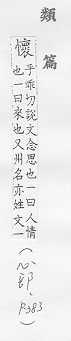 類篇
懷
乎乖切說文念思也一曰人情
也一曰來也又州名亦姓文一
(心部,
P383)